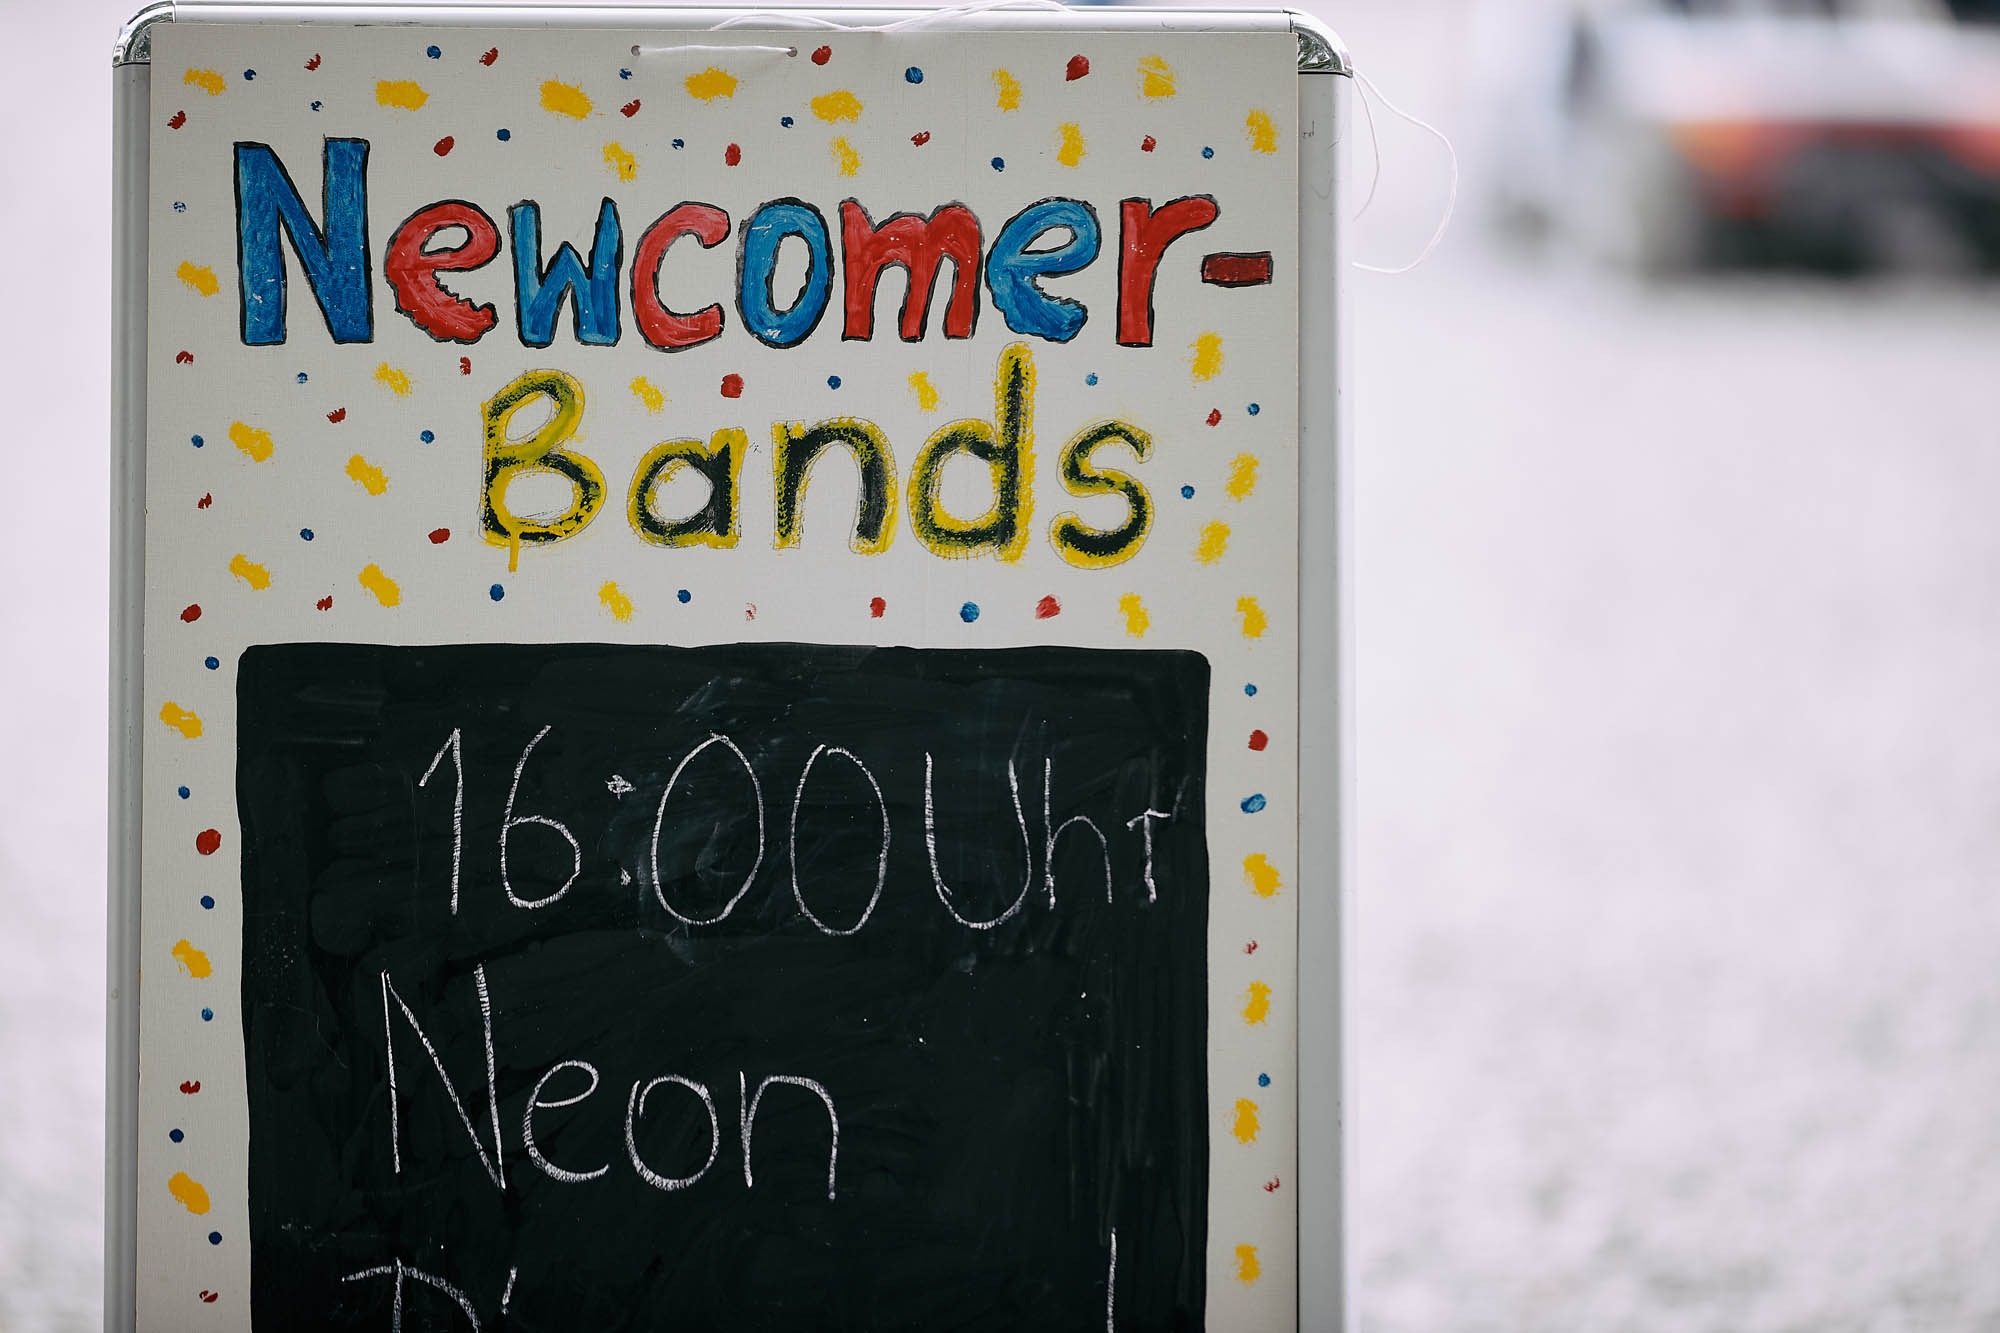 Newcomer-
Bands
16:00 Uhr
Neon